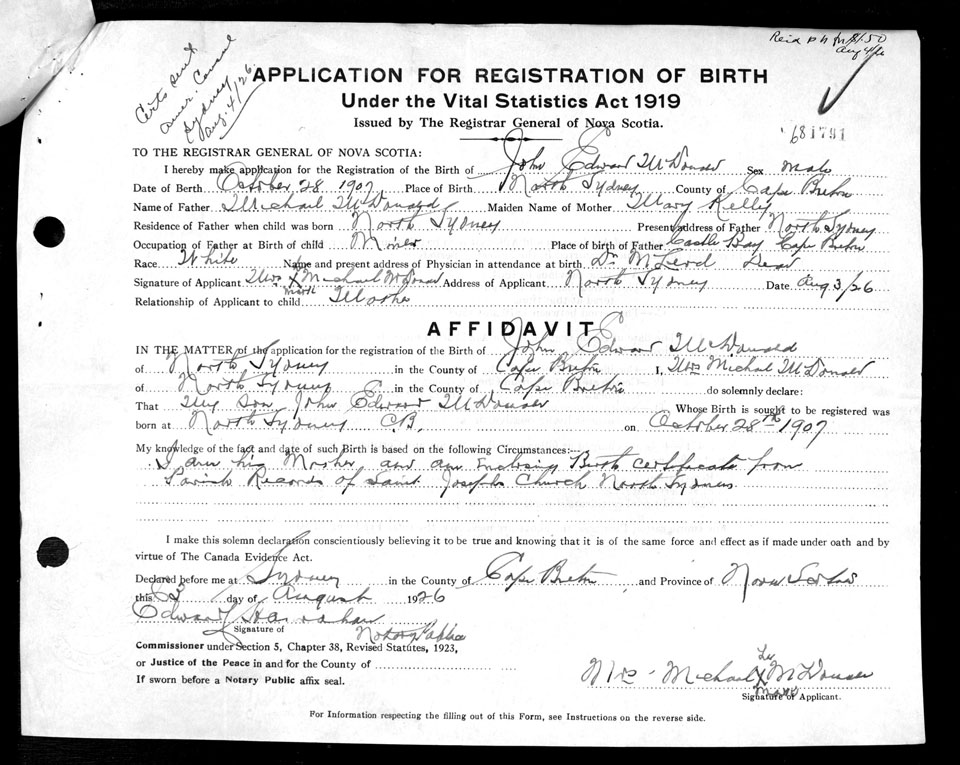 Certs sent
Amer. Consul
Sydney
Aug. 4/26.
$1.50
Aug 4/26
APPLICATION FOR REGISTRATION OF BIRTH
Under the Vital Statistics Act 1919
Issued by The Registrar General of Nova Scotia.
681791
TO THE REGISTRAR GENERAL OF NOVA SCOTIA:
I hereby make application for the Registration of the Birth of John Edward McDonald Sex Male
Date of Birth October 28 1907 Place of Birth North Sydney County of Cape Breton
Name of Father Michael McDonald Maiden Name of Mother Mary Kelly
Residence of Father when child was born North Sydney Present address of Father North Sydney
Occupation of Father at Birth of child Miner Place of birth of Father Castle Bay Cape Breton
Race White Name and present address of Physician in attendance at birth Dr McLeod Dead
Signature of Applicant Mrs X Michael McDonald Address of Applicant North Sydney Date Aug 3/26
mark
Relationship of Applicant to child Mother
AFFIDAVIT
IN THE MATTER of the application for the registration of the Birth of John Edward McDonald
of North Sydney in the County of Cape Breton I, Mrs Michael McDonald
of North Sydney in the County of Cape Breton do solemnly declare:
That My son John Edward McDonald Whose Birth is sought to be registered was
born at North Sydney C.B. on October 28th 1907
My knowledge of the fact and date of such Birth is based on the following Circumstances:—
I am his Mother and am Enclosing Birth certificate from
Parish Records of Saint Josephs Church North Sydney
I make this solemn declaration conscientiously believing it to be true and knowing that it is of the same force and effect as if made under oath and by
virtue of The Canada Evidence Act.
Declared before me at Sydney in the County of Cape Breton and Province of Nova Scotia
this day of August 1926
Edward
Signature of Notary Public
Commissioner under Section 5, Chapter 38, Revised Statutes, 1923,
or Justice of the Peace in and for the County of
If sworn before a Notary Public affix seal.
Mrs - Michael X McDonald
Mark
Signature of Applicant.
For Information respecting the filling out of this Form, see Instructions on the reverse side.